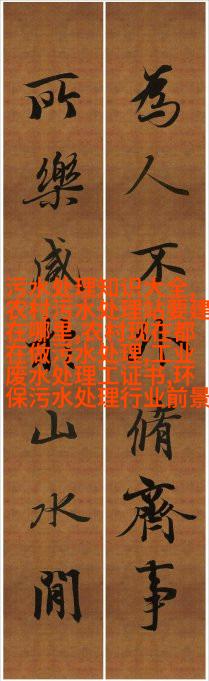 為人不脩齊事
所樂咸山水間
污水处理知识大全,
农村污水处理站要建
在哪里,农村现在都
在做污水处理,工业
废水处理工证书,环
保污水处理行业前景